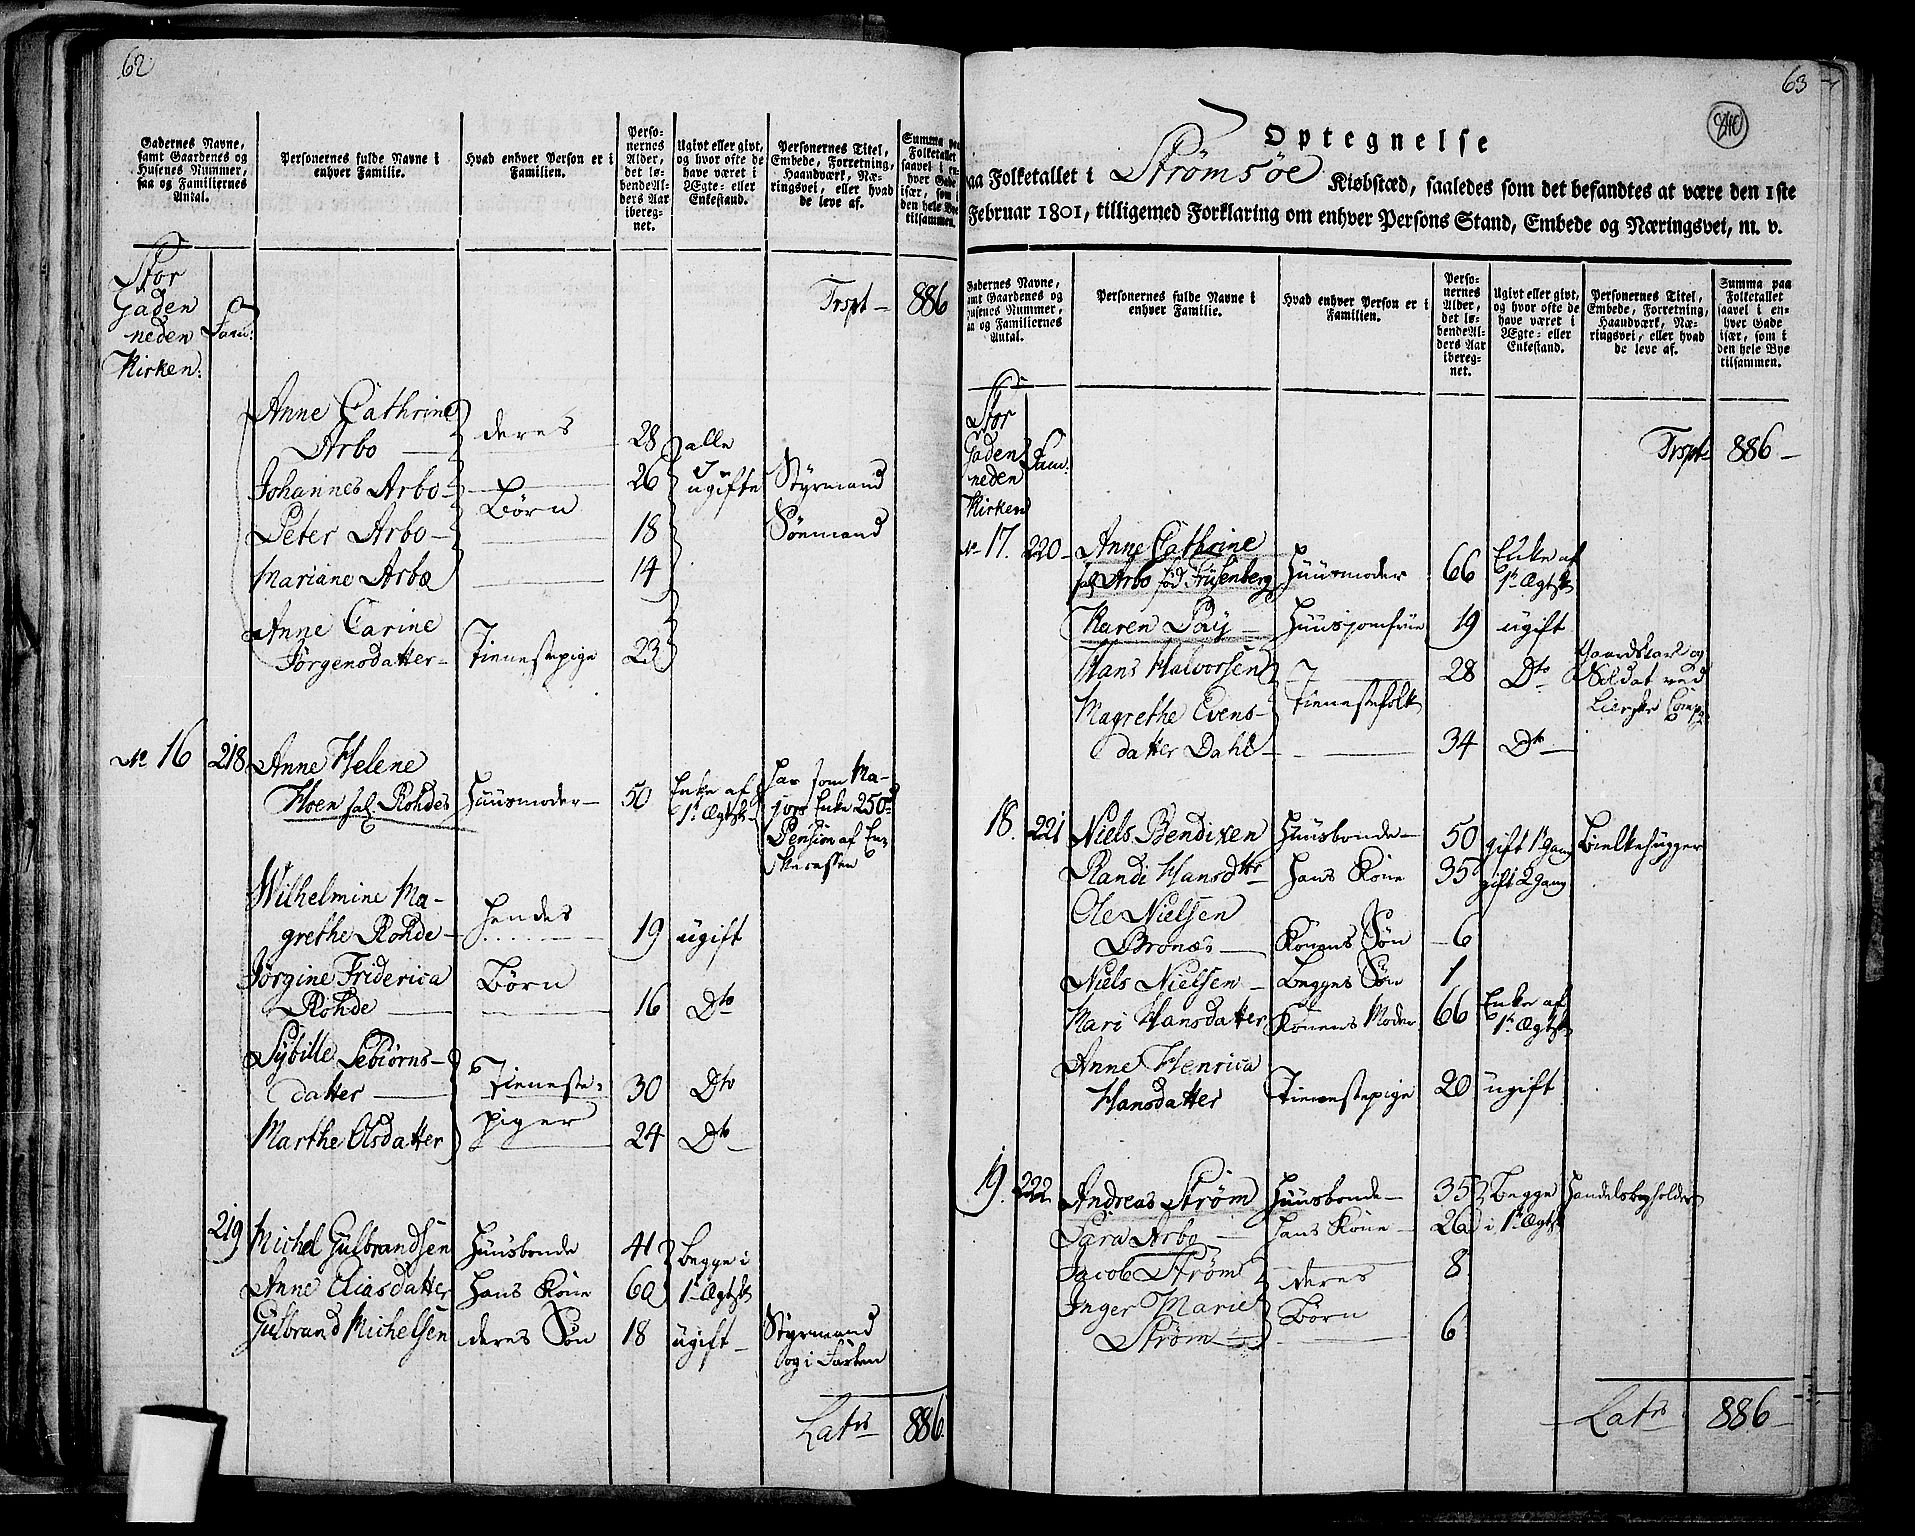 62
Gadernes Navne, samt Gaardenes og Husenes Nummer, saa og Familiernes Antal.
Personernes fulde Navne i enhver Familie.
Hvad enhver Person er i Familien.
Personernes Alder, det løbende Alders Aar iberegnet.
Ugivt eller givt, og hvor ofte de have været i Ægte- eller Enkestand.
Personernes Titel, Embede, Forretning, Haandværk, Næringsvei, eller hvad de leve af.
Summa paa Folketallet saavel i enhver Gade især, som i den hele Bye tilsammen.
Stor
Gaden
neden Fam:
Kirken:
Trspt - 886
Anne Cathrine
Arbo - deres 28 alle
Johannes Arbo - 26 ugifte Styrmand
Børn
Peter Arbo - 18 Søemand
Mariane Arbo 14
Anne Carine
Jørgensdatter - Tienestepige 23
No 16 218 Anne Helene
Hoen sal. Rohdes Huusmoder - 50 Enke af 1t Ægtsk - har som Ma-
jors Enke 250 rd
Pension af En-
kekassen
Wilhelmine Ma-
grethe Rohde - hendes 19 ugift
Jørgine Friderica Børn
Rohde 16 Dto
Sybille Lebiørns-
datter - Tieneste- 30 Dto
piger
Marthe Olsdatter 24 Dto -
219 Michel Gulbrandsen Huusbonde 41 begge i
Anne Eliasdatter hans Kone 60 1t Ægtsk
Gulbrand Michelsen deres Søn 18 ugift - Styrmand
Lats 886.
63
840
Optegnelse
paa Folketallet i Strømsøe Kiøbstæd, saaledes som det befandtes at være den 1ste
Februar 1801, tilligemed Forklaring om enhver Persons Stand, Embede og Næringsvei, m. v.
Gadernes Navne, samt Gaardenes og Husenes Nummer, saa og Familiernes Antal.
Personernes fulde Navne i enhver Familie.
Hvad enhver Person er i Familien.
Personernes Alder, det løbende Alders Aar iberegnet.
Ugivt eller givt, og hvor ofte de have været i Ægte- eller Enkestand.
Personernes Titel, Embede, Forretning, Haandværk, Næringsvei, eller hvad de leve af.
Summa paa Folketallet saavel i enhver Gade især, som i den hele Bye tilsammen.
Stor
Gaden Fam:
neden
Kirken
Trspt - 886 -
No 17. 220 - Anne Cathrine
sal Arbo fød Frisenberg Huusmoder 66 Enke af 1t Ægtsk
Karen Paÿ - Huusjomfrue 19 ugift
Hans Halvorsen 28 Dto Gaardskar og
Soldat ved
Lierske Comp
Tienestefolk
Magrethe Evens-
datter Dahl - 34 Dto -
18. 221 Niels Bendixen Huusbonde - 50 gift 1 Gang Bielkehugger
Randi Hansdtr hans Kone 35 gift 2 Gang
Ole Nielsen
Bronæs - Konens Søn - 6
Niels Nielsen - begges Søn 1
Mari Hansdatter Konens Moder 66 Enke af 1t Ægtsk
Anne Henrica
Hansdatter Tienestepige 20 ugift
19. 222 Andreas Strøm Huusbonde - 35 begge Handelsbogholder
Sara Arbo - hans Kone - 26 i 1t Ægtsk
Jacob Strøm deres 8
Inger Marie Børn
Strøm 6
- Lats 886 -